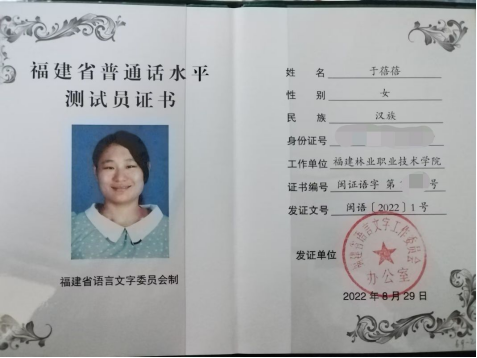 福建省普通话水平
测试员证书
福建省语言文字委员会制
姓名 于蓓蓓
性别 女
民族 汉族
身份证号
工作单位 福建林业职业技术学院
证书编号 闽证语字 第 号
发证文号 闽语〔2022〕1号
发证单位
福建省语言文字工作委员会
办公室
2022年8月29日